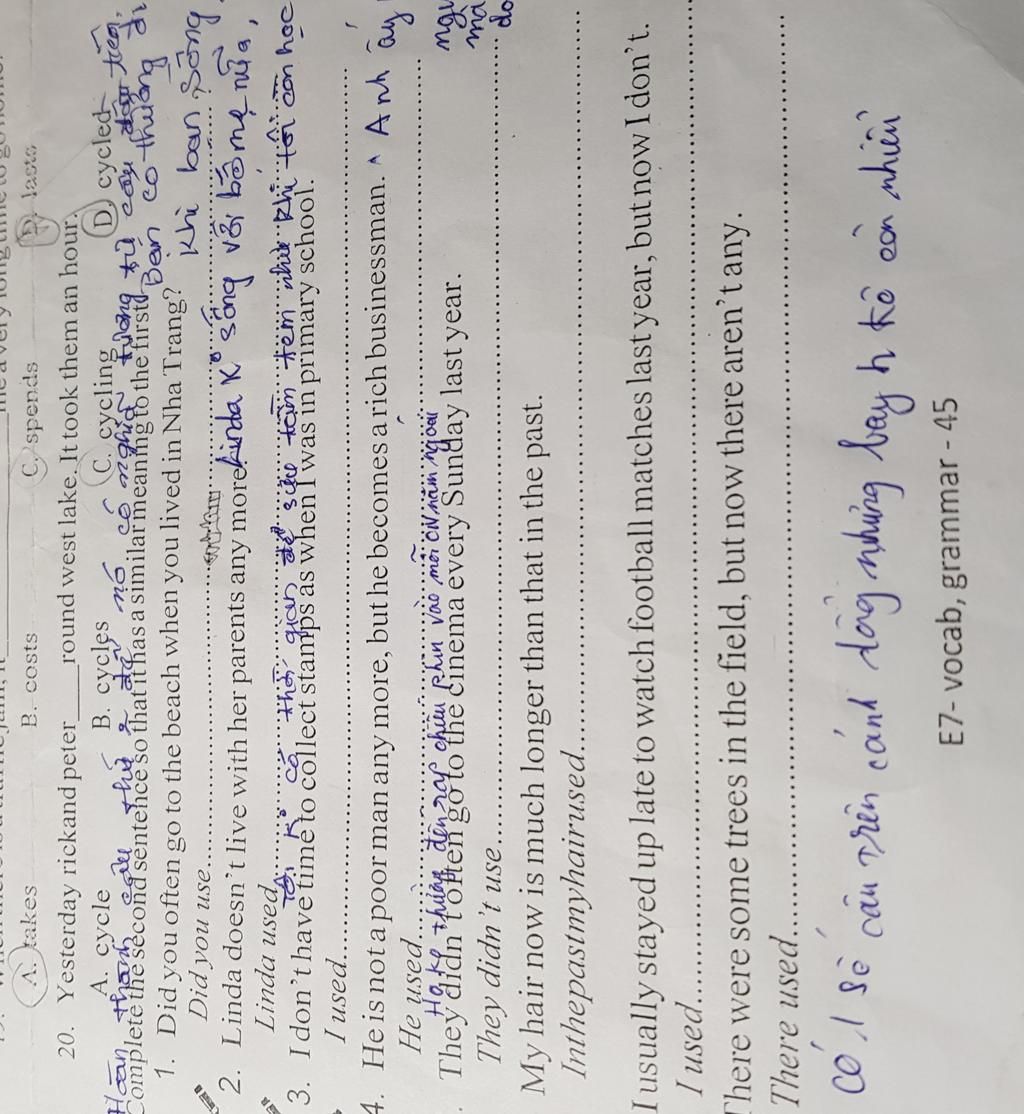 A. takes B. costs C. spends D. lasts
20. Yesterday rick and peter ____ round west lake. It took them an hour.
A. cycle B. cycles C. cycling D. cycled
Hoàn thành câu thứ 2 để nó có nghĩa tương tự câu đầu tiên.
Complete the second sentence so that it has a similar meaning to the first.
Bạn có thường đi
1. Did you often go to the beach when you lived in Nha Trang?
Khi bạn sống
Did you use
2. Linda doesn't live with her parents any more. Linda K° sống với bố mẹ nữa,
Linda used
Tôi K° có thời gian để sưu tầm tem như khi tôi còn học
3. I don't have time to collect stamps as when I was in primary school.
I used
4. He is not a poor man any more, but he becomes a rich businessman. Anh ấy
He used
Họ thường đến rạp chiếu phim vào mỗi CN năm ngoái
They didn't often go to the cinema every Sunday last year.
They didn't use
My hair now is much longer than that in the past.
Inthepastmyhairused
I usually stayed up late to watch football matches last year, but now I don't.
I used
There were some trees in the field, but now there aren't any.
There used
Có 1 số cây trên cánh đồng nhưng bây h kô còn nhiều
E7- vocab, grammar - 45